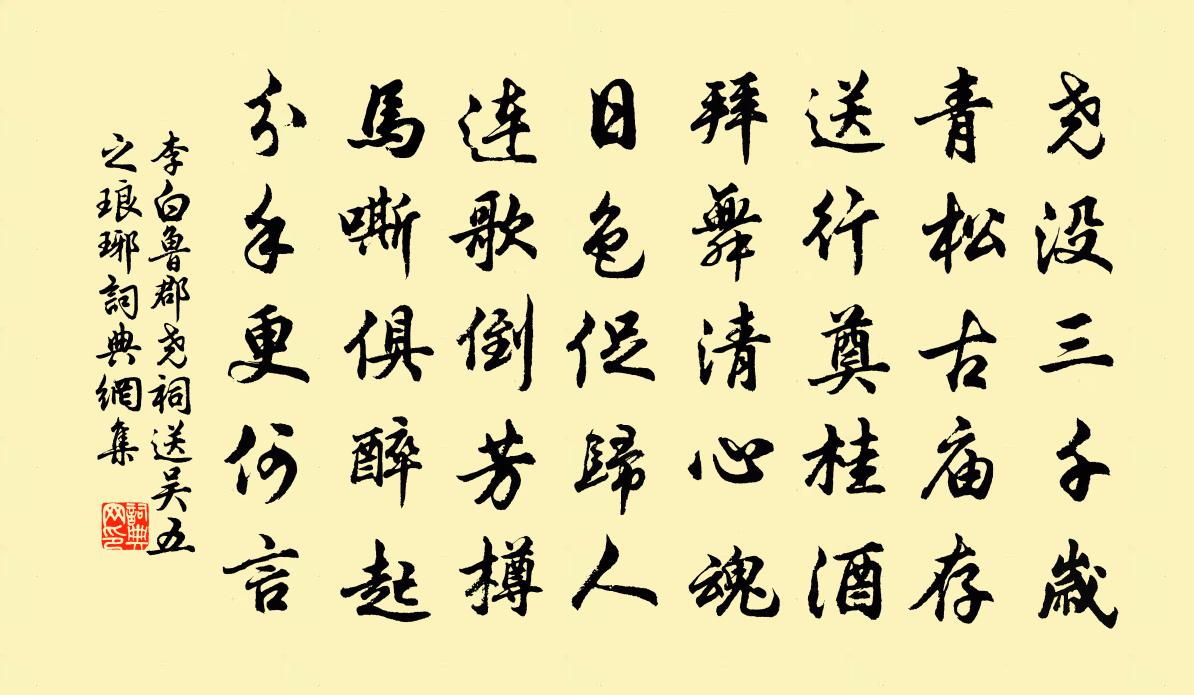 尧没三千歲
青松古庙存
送行奠桂酒
拜舞清心魂
日色促歸人
连歌倒芳樽
馬嘶俱醉起
分手更何言
李白魯郡尧祠送吴五
之琅琊詞典網集
詞典
网印